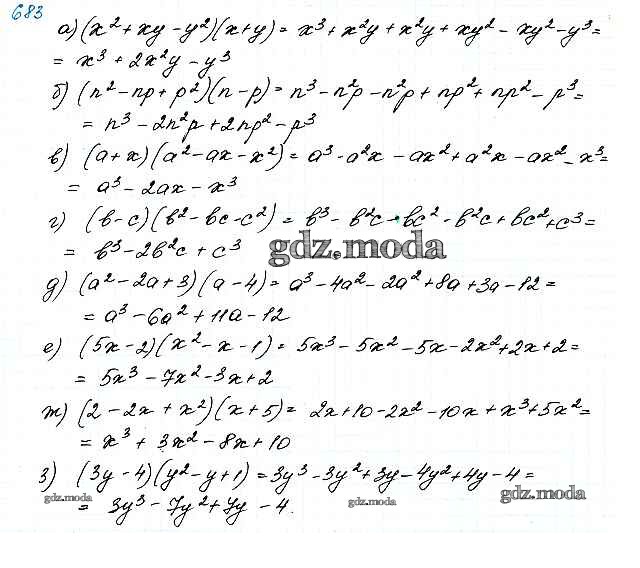 683
а) (x² + xy - y²)(x+y) = x³ + x²y + x²y + xy² - xy² - y³ =
= x³ + 2x²y - y³
б) (n² - np + p²)(n - p) = n³ - n²p - n²p + np² + np² - p³ =
= n³ - 2n²p + 2np² - p³
в) (a + x)(a² - ax - x²) = a³ - a²x - ax² + a²x - ax² - x³ =
= a³ - 2ax - x³
г) (b - c)(b² - bc - c²) = b³ - b²c - bc² - b²c + bc² + c³ =
= b³ - 2b²c + c³
gdz.moda
д) (a² - 2a + 3)(a - 4) = a³ - 4a² - 2a² + 8a + 3a - 12 =
= a³ - 6a² + 11a - 12
е) (5x - 2)(x² - x - 1) = 5x³ - 5x² - 5x - 2x² + 2x + 2 =
= 5x³ - 7x² - 3x + 2
ж) (2 - 2x + x²)(x + 5) = 2x + 10 - 2x² - 10x + x³ + 5x² =
= x³ + 3x² - 8x + 10
з) (3y - 4)(y² - y + 1) = 3y³ - 3y² + 3y - 4y² + 4y - 4 =
gdz.moda
= 3y³ - 7y² + 7y - 4.
gdz.moda
gdz.moda